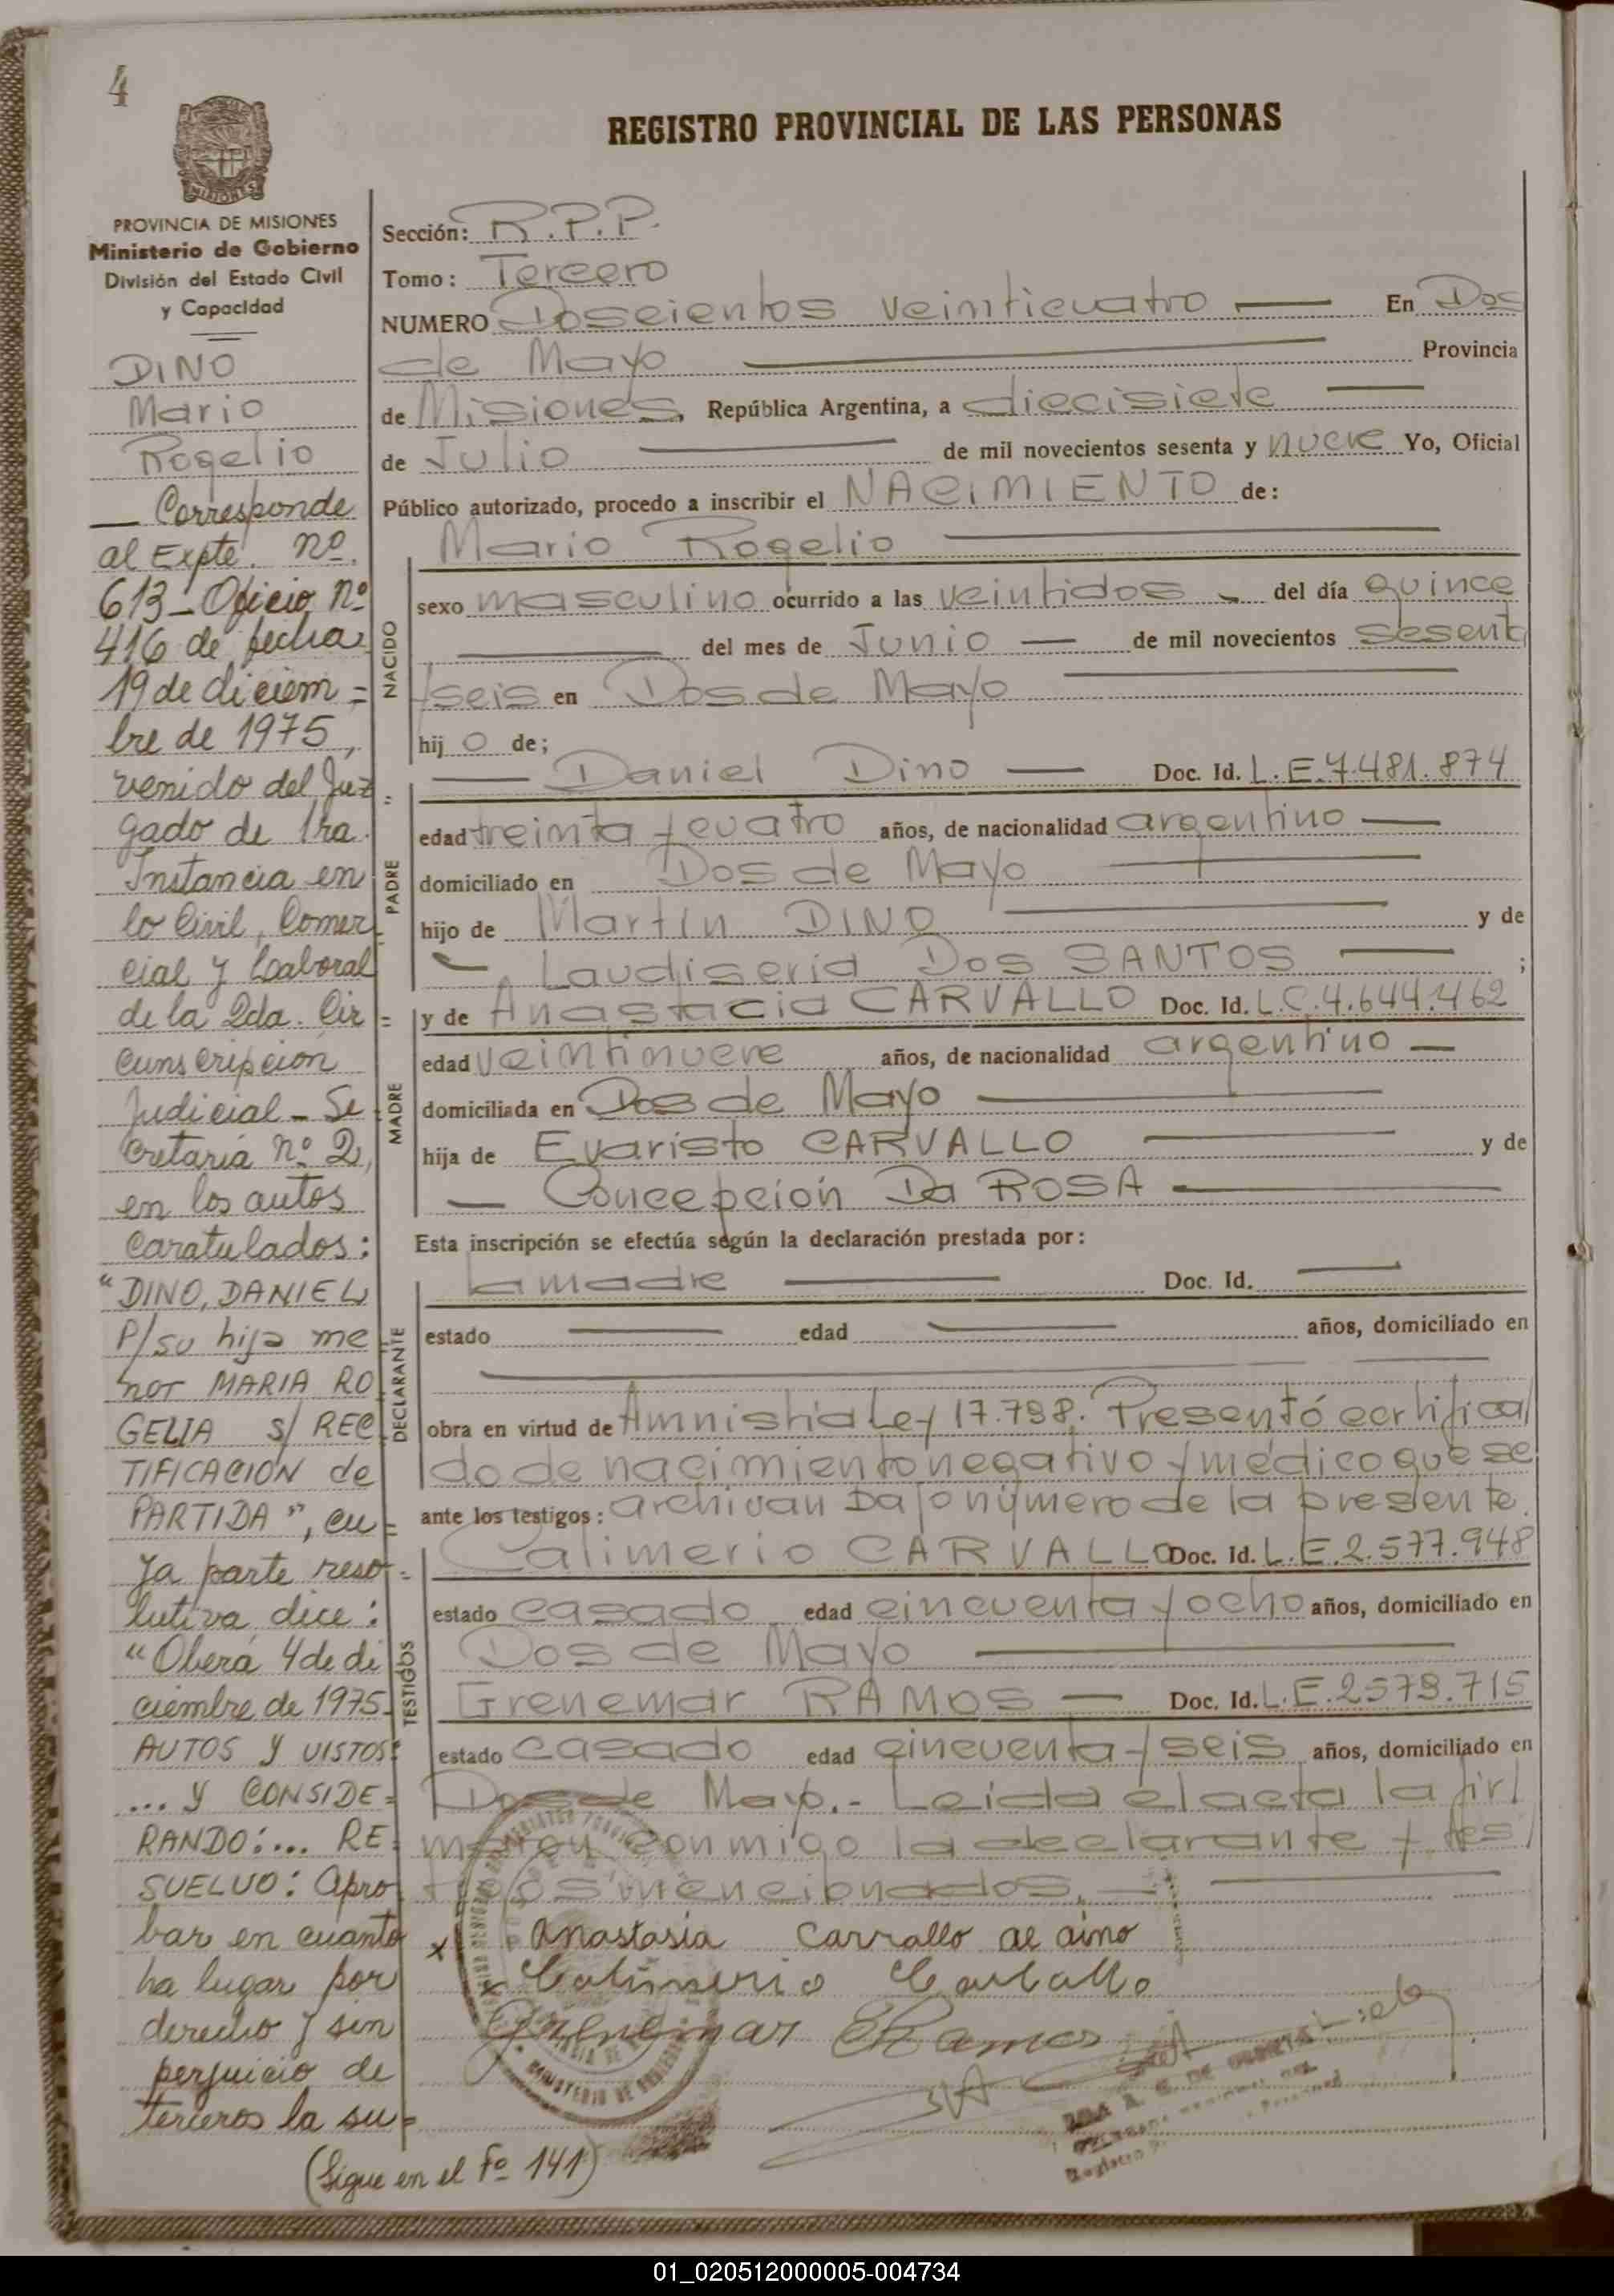 4
REGISTRO PROVINCIAL DE LAS PERSONAS
MISIONES
PROVINCIA DE MISIONES
Ministerio de Gobierno
División del Estado Civil
y Capacidad
DINO
Mario
Rogelio
— Corresponde
al Expte. nº
613 - Oficio Nº
416 de fecha
19 de diciem =
bre de 1975,
venido del Juz =
gado de 1ra.
Instancia en
lo Civil, Comer
cial y Laboral
de la 2da. Cir =
cunscripción
Judicial - Se
cretaría nº 2,
en los autos
caratulados:
"DINO, DANIEL
P/su hija me
nor MARIA RO
GELIA s/ REC
TIFICACION de
PARTIDA", cu =
ya parte reso =
lutiva dice:
"Oberá, 4 de di
ciembre de 1975.
AUTOS Y VISTOS:
... Y CONSIDE =
RANDO:... RE
SUELVO: Apro
bar en cuanto
ha lugar por
derecho y sin
perjuicio de
terceros la su =
(Sigue en el Fº 141)
Sección: R.P.P.
Tomo: Tercero
NUMERO Doscientos veinticuatro — En Dos
de Mayo — Provincia
de Misiones, República Argentina, a diecisiete —
de Julio — de mil novecientos sesenta y nueve Yo, Oficial
Público autorizado, procedo a inscribir el NACIMIENTO de:
NACIDO
Mario Rogelio —
sexo masculino ocurrido a las veintidos - del día quince
— del mes de Junio — de mil novecientos sesent
/seis en Dos de Mayo —
hij o de;
PADRE
— Daniel Dino — Doc. Id. L.E.7.481.874
edad treinta y cuatro años, de nacionalidad argentino —
domiciliado en Dos de Mayo —
hijo de Martín DINO — y de
— Laudiseria Dos SANTOS — ;
MADRE
y de Anastacia CARVALLO Doc. Id. L.C.4.644.462
edad veintinueve años, de nacionalidad argentino —
domiciliada en Dos de Mayo —
hija de Evaristo CARVALLO — y de
— Concepción Da ROSA —
Esta inscripción se efectúa según la declaración prestada por:
DECLARANTE
la madre — Doc. Id. —
estado — edad — años, domiciliado en
—
obra en virtud de Amnistia Ley 17.798. Presentó certifica/
do de nacimiento negativo y médico que se
ante los testigos: archivan bajo número de la presente.
TESTIGOS
Calimerio CARVALLO Doc. Id. L.E.2.577.948
estado casado edad cincuenta y ocho años, domiciliado en
Dos de Mayo —
Grenemar RAMOS — Doc. Id. L.E.2578.715
estado casado edad cincuenta y seis años, domiciliado en
Dos de Mayo.- Leída el acta la fir/
man conmigo la declarante y tes/
tigos mencionados. —
x Anastasia Carvallo de dino
x Calimerio Carballo
Grenemar Ramos
01_020512000005-004734